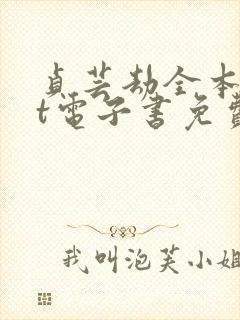 貞芸劫全本
t電子書免費
我叫泡芙小姐